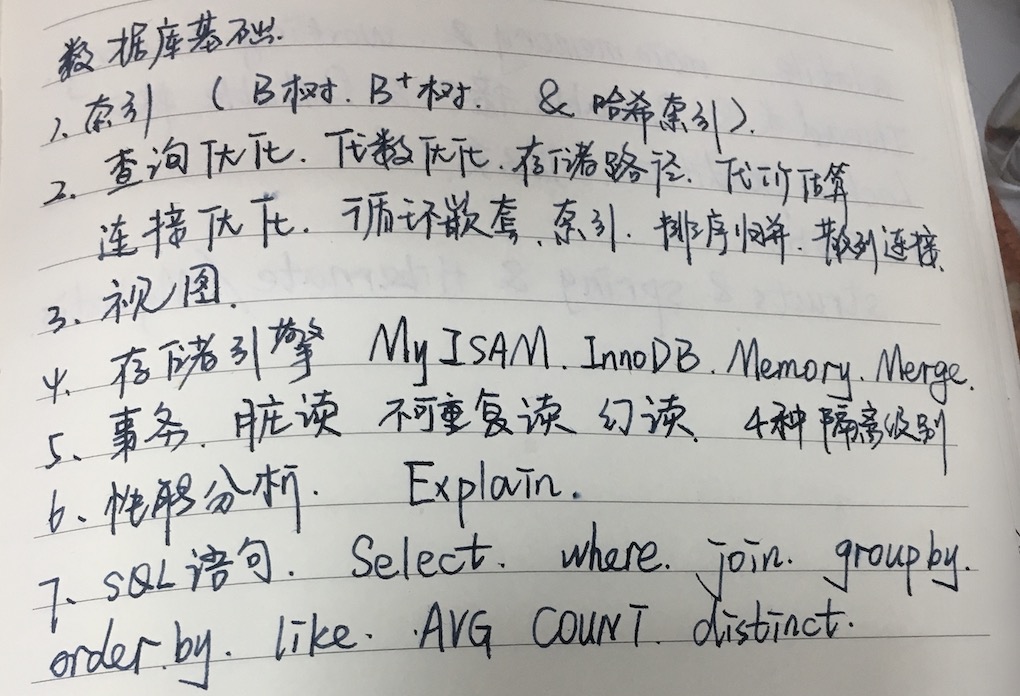 数据库基础.
1、索引 (B树. B+树. & 哈希索引).
2、查询优化. 代数优化. 存储路径. 代价估算
连接优化. 循环嵌套. 索引. 排序归并. 散列连接.
3、视图.
4、存储引擎 MyISAM. InnoDB. Memory. Merge.
5、事务. 脏读 不可重复读 幻读. 4种隔离级别
6、性能分析. Explain.
7、SQL语句. Select. where. join. group by.
order by. like. AVG COUNT. distinct.